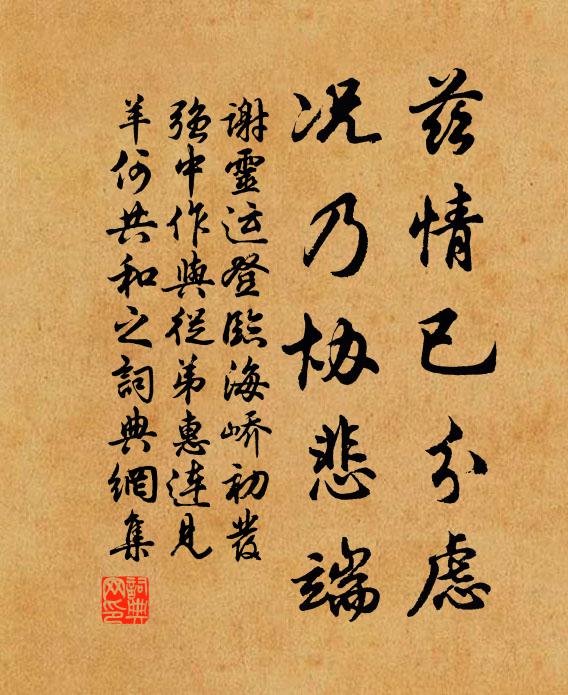 茲情已分慮
况乃协悲端
謝靈运登臨海嶠初發
强中作與從弟惠連見
羊何共和之詞典網集
詞典网印